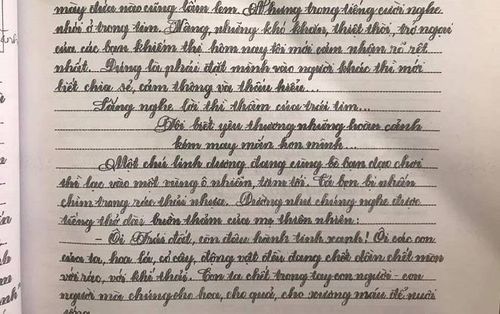 mày đứa nào cũng lấm lem. Nhưng trong tiếng cười nghe
nhói ở trong tim. Vâng, những khó khăn, thiệt thòi, trở ngại
của các bạn khiếm thị hôm nay tôi mới cảm nhận rõ rệt
nhất. Đúng là phải đặt mình vào người khác thì mới
biết chia sẻ, cảm thông và thấu hiểu...
Lắng nghe lời thì thầm của trái tim...
Tôi biết yêu thương những hoàn cảnh
kém may mắn hơn mình...
Một chú linh dương đang cùng bè bạn dạo chơi
thì lạc vào một vùng ô nhiễm, tăm tối. Cả bọn bị nhấn
chìm trong rác thải nhựa. Dường như chúng nghe được
tiếng thở dài buồn thảm của mẹ thiên nhiên:
- Ôi Trái đất, còn đâu hành tinh xanh! Ôi các con
của ta, hoa lá, cỏ cây, động vật đều đang chết dần chết mòn
với rác, với khí thải. Con ta chết trong tay con người - con
người mà chúng cho hoa, cho quả, cho xương máu để nuôi